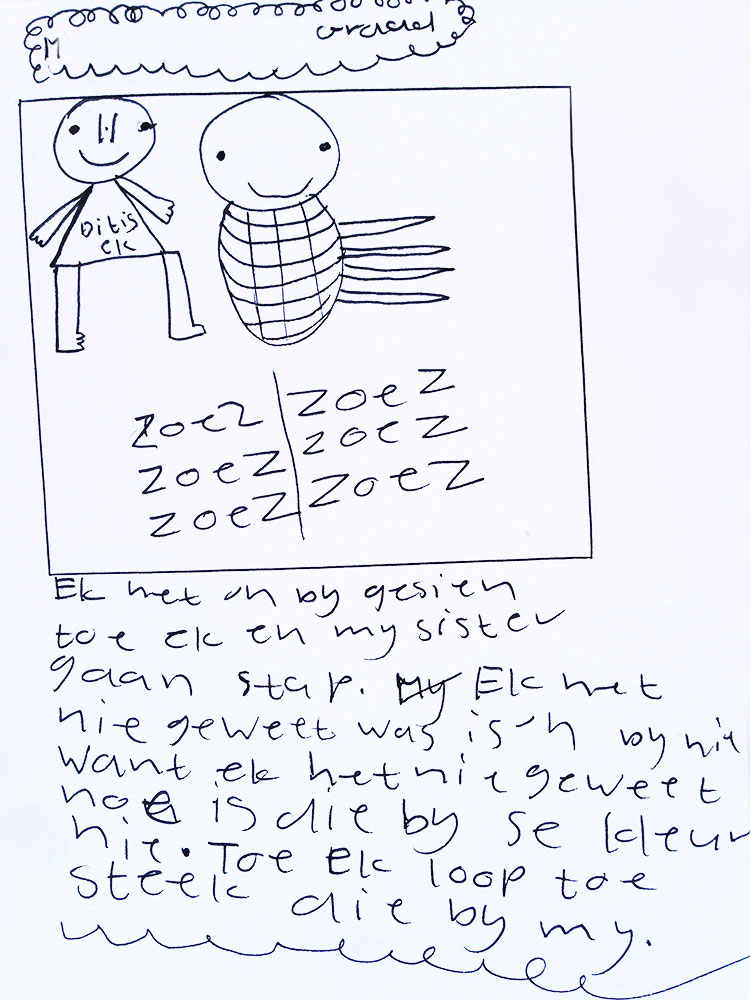 M graad
Dit is
ek
zoez zoez
zoez zoez
zoez zoez
Ek het 'n by gesien
toe ek en my sister
gaan stap. My Ek het
nie geweet was is 'n by nie
want ek het nie geweet
hoe is die by se kleur
nie. Toe Ek loop toe
steek die by my.